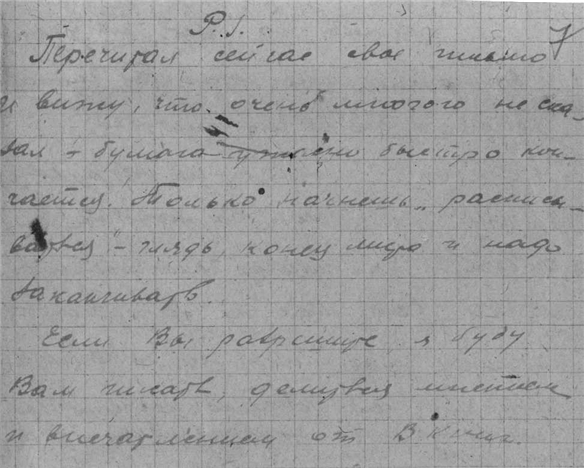 P.S. 7
Перечитал сейчас свое письмо
и вижу, что очень многого не ска-
зал – бумага ужасно быстро кон-
чается. Только начнешь расписы-
ваться – глядь, конец листа и надо
заканчивать.
Если Вы разрешите я буду
Вам писать, делиться мыслями
и впечатлением от